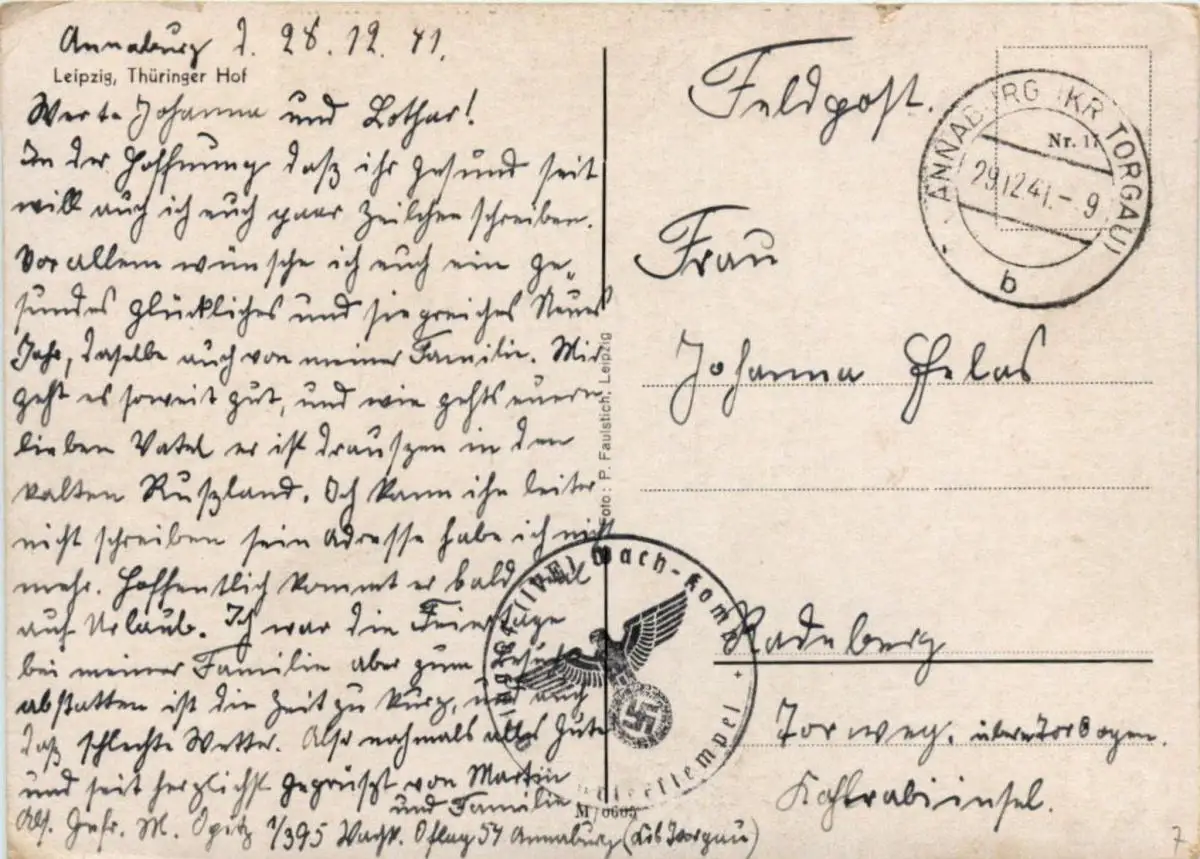 Annaburg d. 28.12.41.
Leipzig, Thüringer Hof
Werte Johanna und Lothar!
In der Hoffnung daß ihr gesund seit
will auch ich euch paar Zeilchen schreiben.
Vor allem wünsche ich euch ein ge-
sundes glückliches und siegreiches Neues
Jahr, daselbe auch von meiner Familie. Mir
geht es soweit gut, und wie gehts euern
lieben Vatel er ist drauszen in den
kalten Ruszland. Ich kann ihn leiter
nicht schreiben sein Adresse habe ich nicht
mehr. Hoffentlich kommt er bald mal
auf Urlaub. Ich war die Feiertage
bei meiner Familie aber zum Besuch
abstatten ist die Zeit zu kurz, und auch
daß schlechte Wetter. Also nochmals alles Gute
und seit herzlichst gegrüszt von Martin
und Familie
Abs. Gefr. M. Opitz 1/395 Oflag 54 Annaburg (Torgau)
Foto: P. Faulstich, Leipzig
M/0605
Feldpost.
Nr. 11
ANNABURG (KR TORGAU)
29.12.41.-9
b
Frau
Johanna Helas
Radeberg
Torweg, überm Torbogen.
Kohlrabiinsel.
Wach-Komp.
7